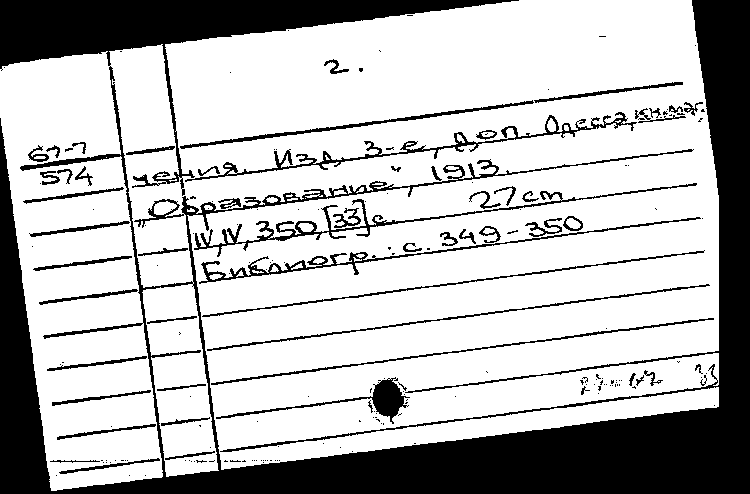 2.
67-7
574
чения. Изд. 3-е, доп. Одесса, кн. маг.
„Образование", 1913.
IV, IV, 350, [33] с. 27 cm.
Библиогр.: с. 349-350